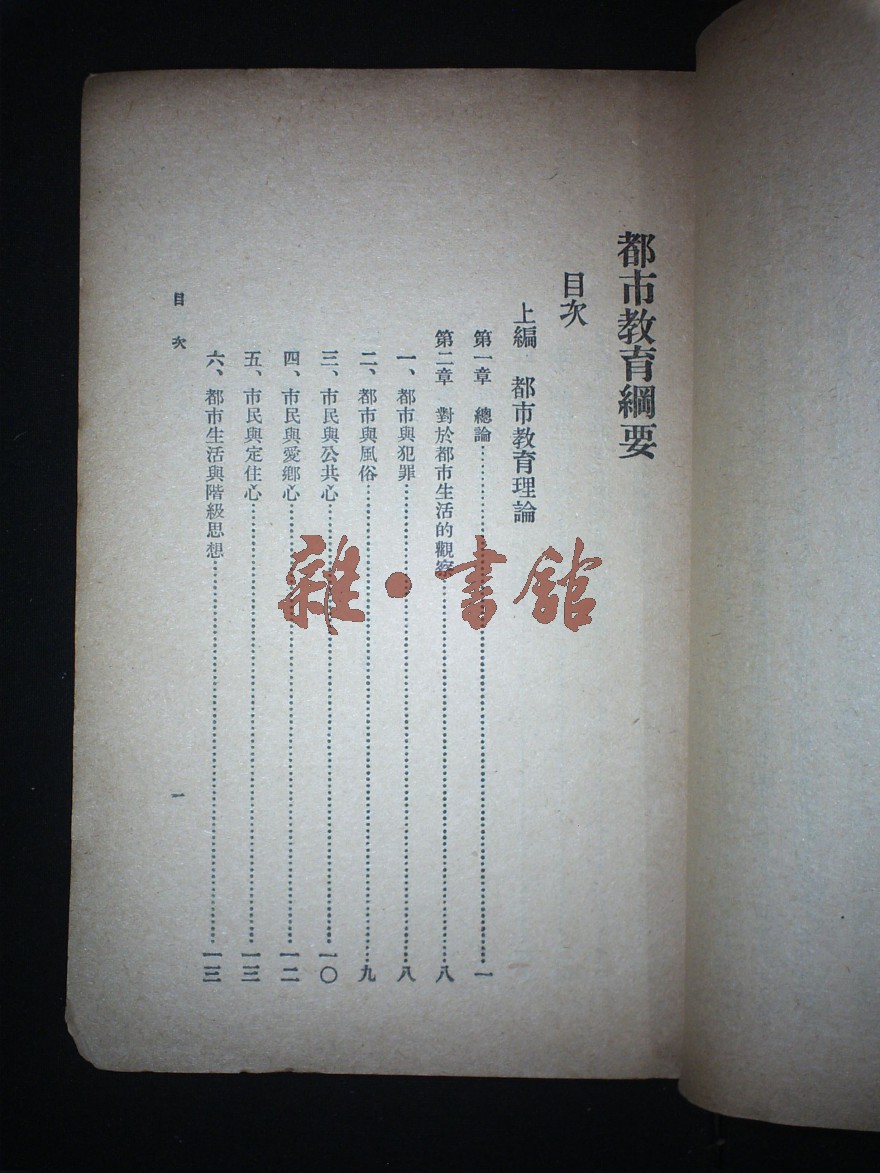 都市教育綱要
目次
上編 都市教育理論
第一章 總論……一
第二章 對於都市生活的觀察……八
一、都市與犯罪……八
二、都市與風俗……九
三、市民與公共心……一〇
四、市民與愛鄉心……一二
五、市民與定住心……一三
六、都市生活與階級思想……一三
目次
一
雜·書館